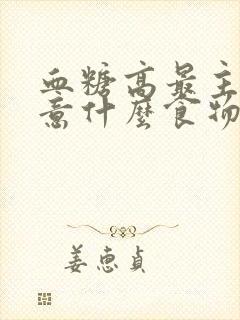 血糖高最主
意什麼食物
姜惠貞